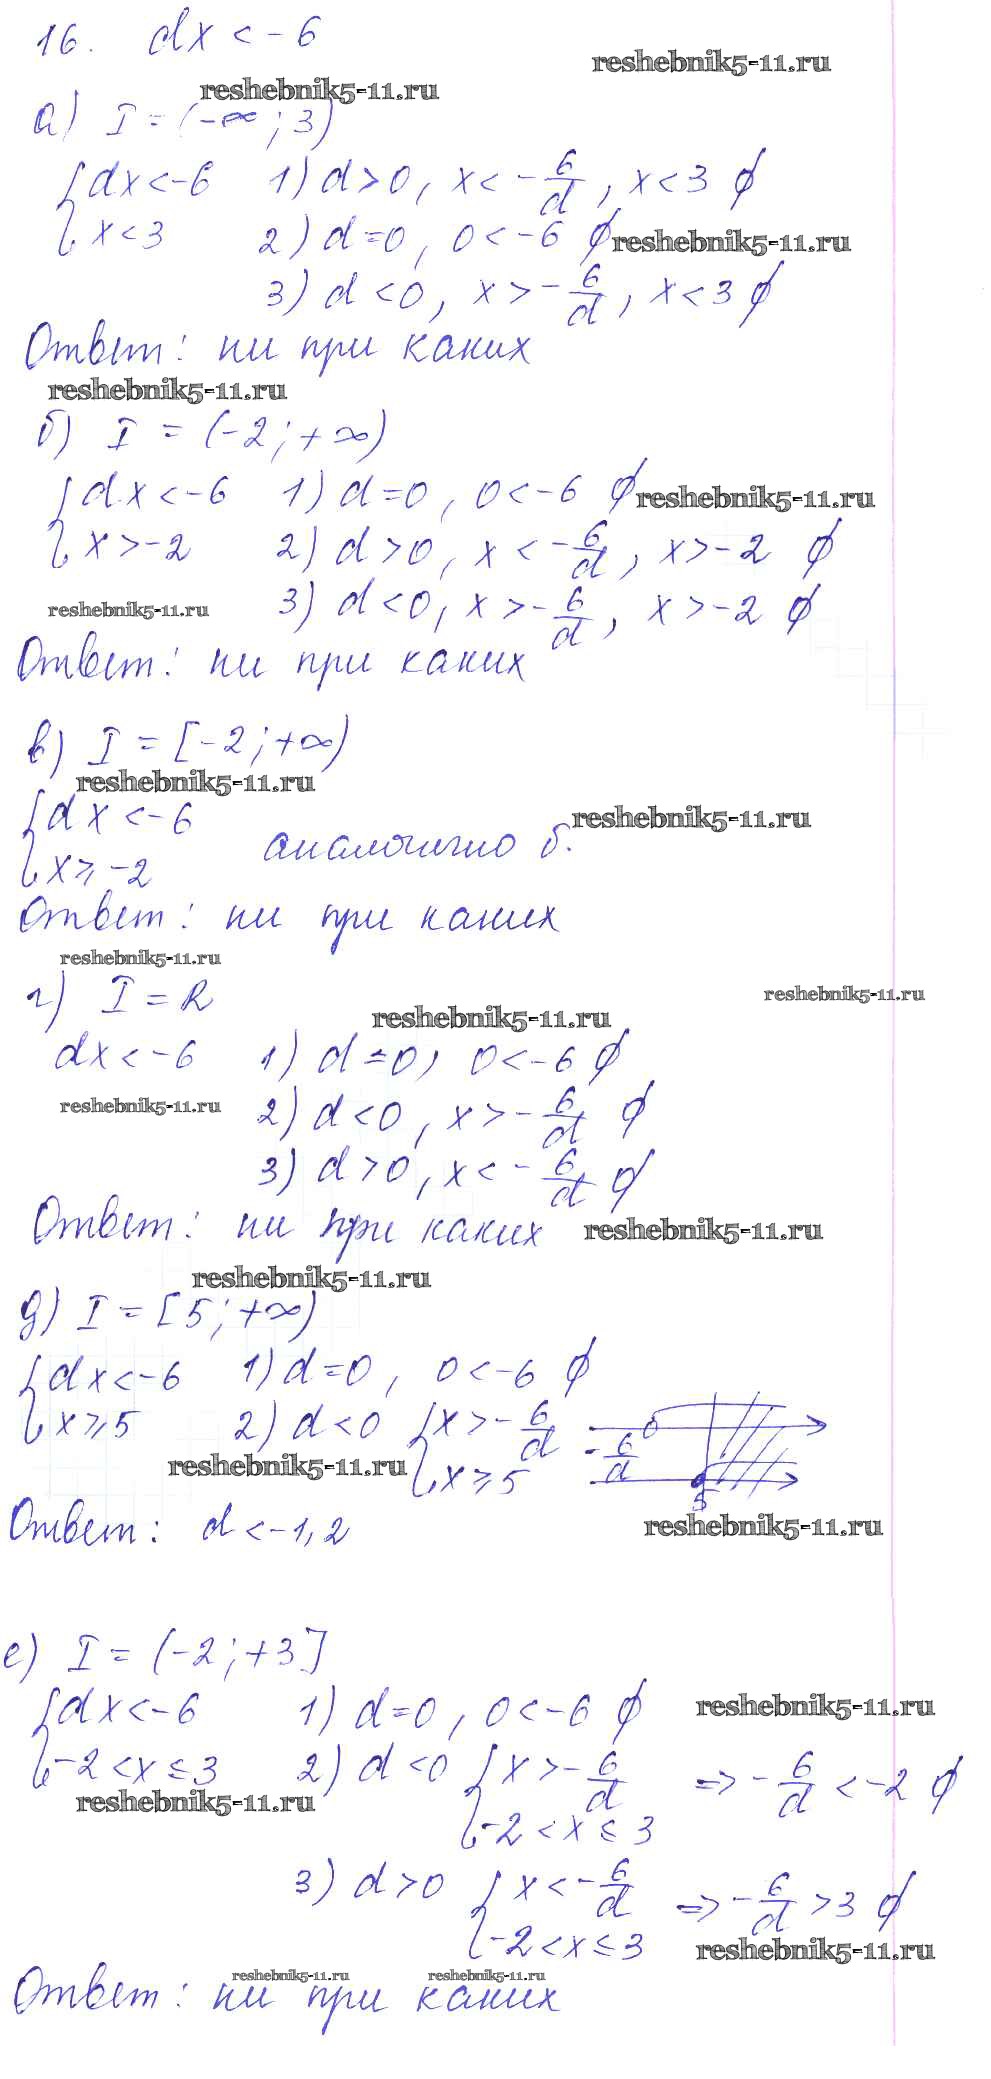 16. dx < -6
reshebnik5-11.ru
reshebnik5-11.ru
а) I = (-∞; 3)
{dx < -6 1) d > 0, x < -6/d, x < 3 ∅
{x < 3 2) d = 0, 0 < -6 ∅ reshebnik5-11.ru
3) d < 0, x > -6/d, x < 3 ∅
Ответ: ни при каких
reshebnik5-11.ru
б) I = (-2; +∞)
{dx < -6 1) d = 0, 0 < -6 ∅ reshebnik5-11.ru
{x > -2 2) d > 0, x < -6/d, x > -2 ∅
reshebnik5-11.ru 3) d < 0, x > -6/d, x > -2 ∅
Ответ: ни при каких
в) I = [-2; +∞)
reshebnik5-11.ru
{dx < -6 reshebnik5-11.ru
{x ≥ -2 аналогично б.
Ответ: ни при каких
reshebnik5-11.ru
г) I = R reshebnik5-11.ru
reshebnik5-11.ru
dx < -6 1) d = 0, 0 < -6 ∅
reshebnik5-11.ru 2) d < 0, x > -6/d ∅
3) d > 0, x < -6/d ∅
Ответ: ни при каких reshebnik5-11.ru
reshebnik5-11.ru
д) I = [5; +∞)
{dx < -6 1) d = 0, 0 < -6 ∅
{x ≥ 5 2) d < 0 {x > -6/d -6/d
reshebnik5-11.ru {x ≥ 5 5
Ответ: d < -1,2 reshebnik5-11.ru
е) I = (-2; +3]
{dx < -6 1) d = 0, 0 < -6 ∅ reshebnik5-11.ru
{-2 < x ≤ 3 2) d < 0 {x > -6/d => -6/d < -2 ∅
reshebnik5-11.ru {-2 < x ≤ 3
3) d > 0 {x < -6/d => -6/d > 3 ∅
{-2 < x ≤ 3 reshebnik5-11.ru
reshebnik5-11.ru reshebnik5-11.ru
Ответ: ни при каких